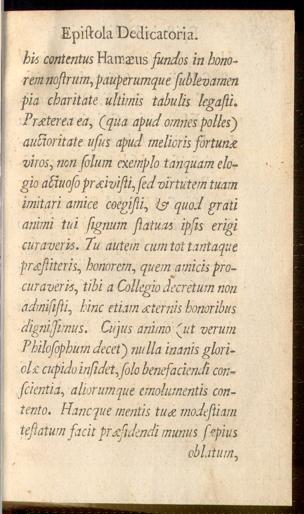 Epistola Dedicatoria.
his contentus Hamæus fundos in hono-
rem nostrum, pauperumque sublevamen
pia charitate ultimis tabulis legasti.
Præterea ea, (qua apud omnes polles)
auctoritate usus apud melioris fortunæ
viros, non solum exemplo tanquam elo-
gio actuoso præivisti, sed virtutem tuam
imitari amice coegisti, & quod grati
animi tui signum statuas ipsis erigi
curaveris. Tu autem cum tot tantaque
præstiteris, honorem, quem amicis pro-
curaveris, tibi a Collegio decretum non
admisisti, hinc etiam æternis honoribus
dignissimus. Cujus animo (ut verum
Philosophum decet) nulla inanis glori-
olæ cupido insidet, solo benefaciendi con-
scientia, aliorumque emolumentis con-
tento. Hancque mentis tuæ modestiam
testatum facit præsidendi munus sæpius
oblatum,